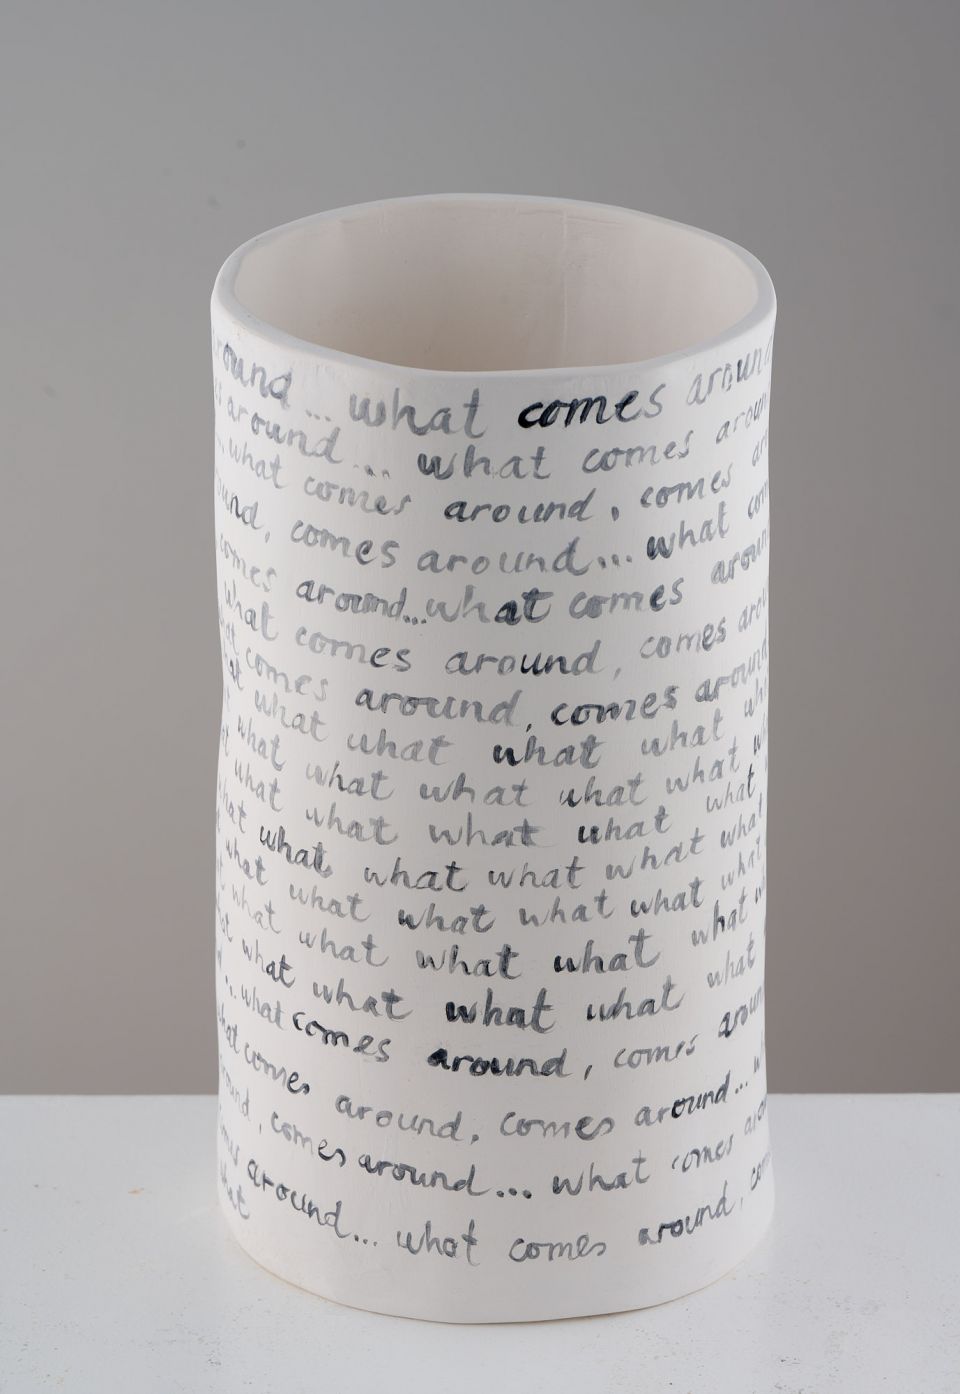 around... what comes around
around... what comes around
...what comes around, comes
around, comes around... what
comes around...what comes around
what comes around, comes
comes around, comes around
what what what what what
what what what what what
what what what what what
what what what what what what
what what what what what what
what what what what what
what what what what what
...what comes around, comes around
what comes around, comes around...
around, comes around... what comes
comes around... what comes around,
what